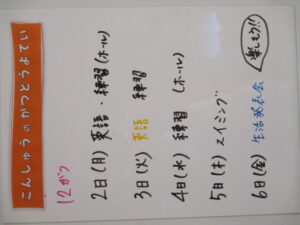 こんしゅうのかつどうよてい
12がつ
2日(月) 英語・練習(ホール)
3日(火) 英語 練習
4日(水) 練習 (ホール)
5日(木) スイミング
6日(金) 生活発表会
楽しもう!!